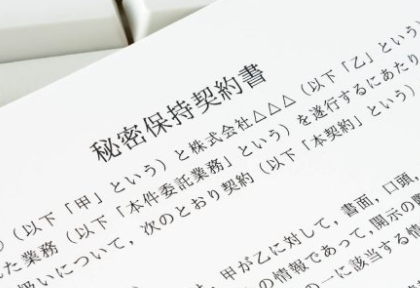 秘密保持契約書
（以下「甲」という）と株式会社△△△（以下「乙」という
た業務（以下「本件委託業務」という）を遂行するにあたり
扱いについて，次のとおり契約（以下「本契約」という）
，甲が乙に対して，書面，口頭，
の情報であって，開示の
の一に該当する情